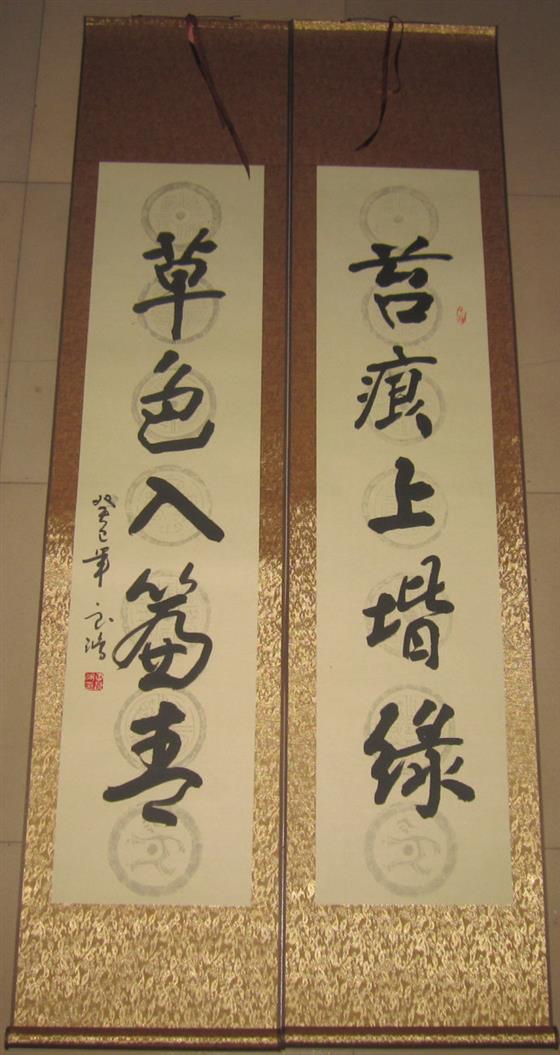 苔痕上堦綠
草色入簾青
癸巳年